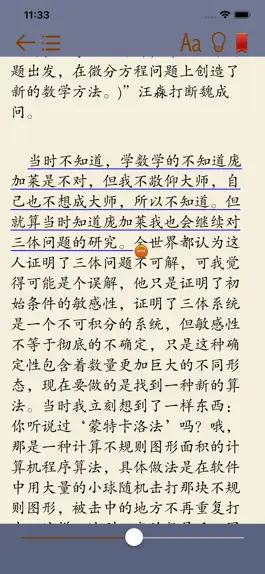 11:33
Aa
题出发，在微分方程问题上创造了
新的数学方法。)”汪淼打断魏成
问。
当时不知道，学数学的不知道庞
加莱是不对，但我不敬仰大师，自
己也不想成大师，所以不知道。但
就算当时知道庞加莱我也会继续对
三体问题的研究。全世界都认为这
人证明了三体问题不可解，可我觉
得可能是个误解，他只是证明了初
始条件的敏感性，证明了三体系统
是一个不可积分的系统，但敏感性
不等于彻底的不确定，只是这种确
定性包含着数量更加巨大的不同形
态，现在要做的是找到一种新的算
法。当时我立刻想到了一样东西：
你听说过‘蒙特卡洛法’吗？哦，
那是一种计算不规则图形面积的计
算机程序算法，具体做法是在软件
中用大量的小球随机击打那块不规
则图形，被击中的地方不再重复打